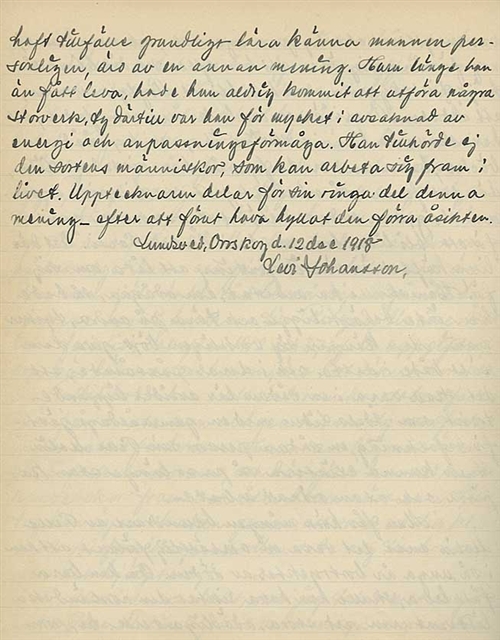 haft tillfälle grundligt lära känna mannen per-
sonligen, äro av en annan mening. Huru länge han
än fått leva, hade han aldrig kommit att utföra några
storverk, ty därtill var han för mycket i avsaknad av
energi och anpassningsförmåga. Han tillhörde ej
den sortens människor, som kan arbeta sig fram i
livet. Upptecknaren delar för sin ringa del denna
mening – efter att förut hava hyllat den förra åsikten.
Lundsved, Orrskog d. 12 dec 1918
Levi Johansson,